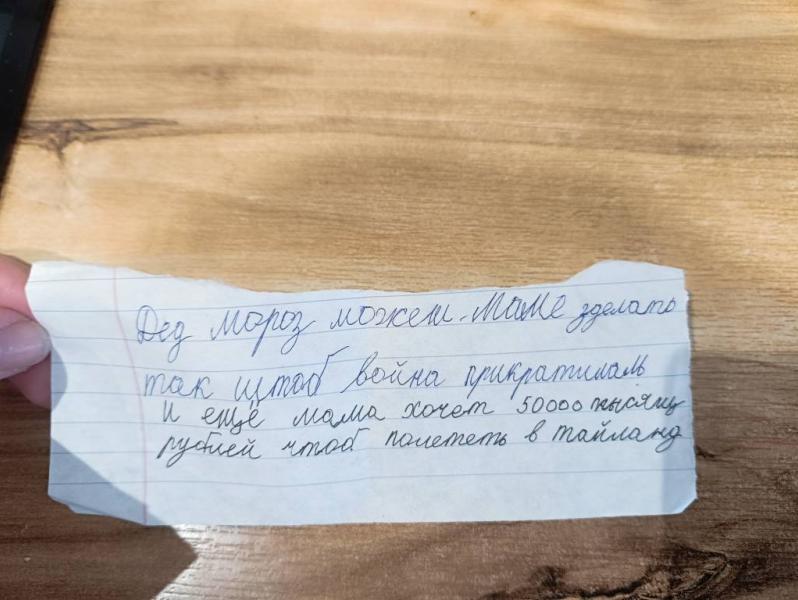 Дед Мороз можеш Маме зделать
так щтоб война прикратилась
и ещё мама хочет 50000 тысящ
рублей чтоб полететь в Тайланд